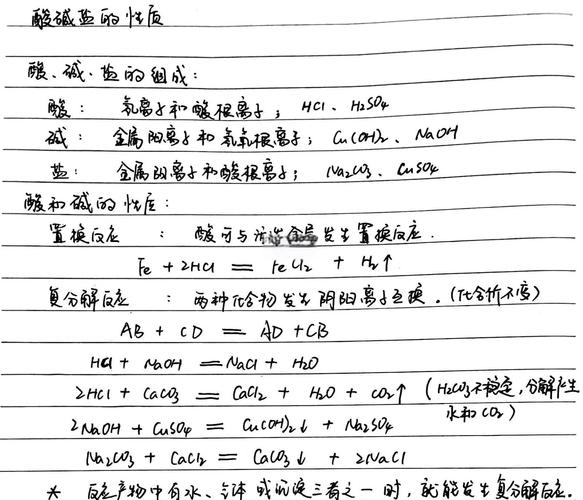 酸碱盐的性质
酸、碱、盐的组成:
酸: 氢离子和酸根离子; HCl、H₂SO₄
碱: 金属阳离子和氢氧根离子; Cu(OH)₂、NaOH
盐: 金属阳离子和酸根离子; Na₂CO₃、CuSO₄
酸和碱的性质:
置换反应 : 酸可与活泼金属发生置换反应.
Fe + 2HCl = FeCl₂ + H₂↑
复分解反应 : 两种化合物发生阴阳离子互换.(化合价不变)
AB + CD = AD + CB
HCl + NaOH = NaCl + H₂O
2HCl + CaCO₃ = CaCl₂ + H₂O + CO₂↑ (H₂CO₃不稳定,分解产生
水和CO₂)
2NaOH + CuSO₄ = Cu(OH)₂↓ + Na₂SO₄
Na₂CO₃ + CaCl₂ = CaCO₃↓ + 2NaCl
* 反应产物中有水、气体或沉淀三者之一时,就能发生复分解反应.